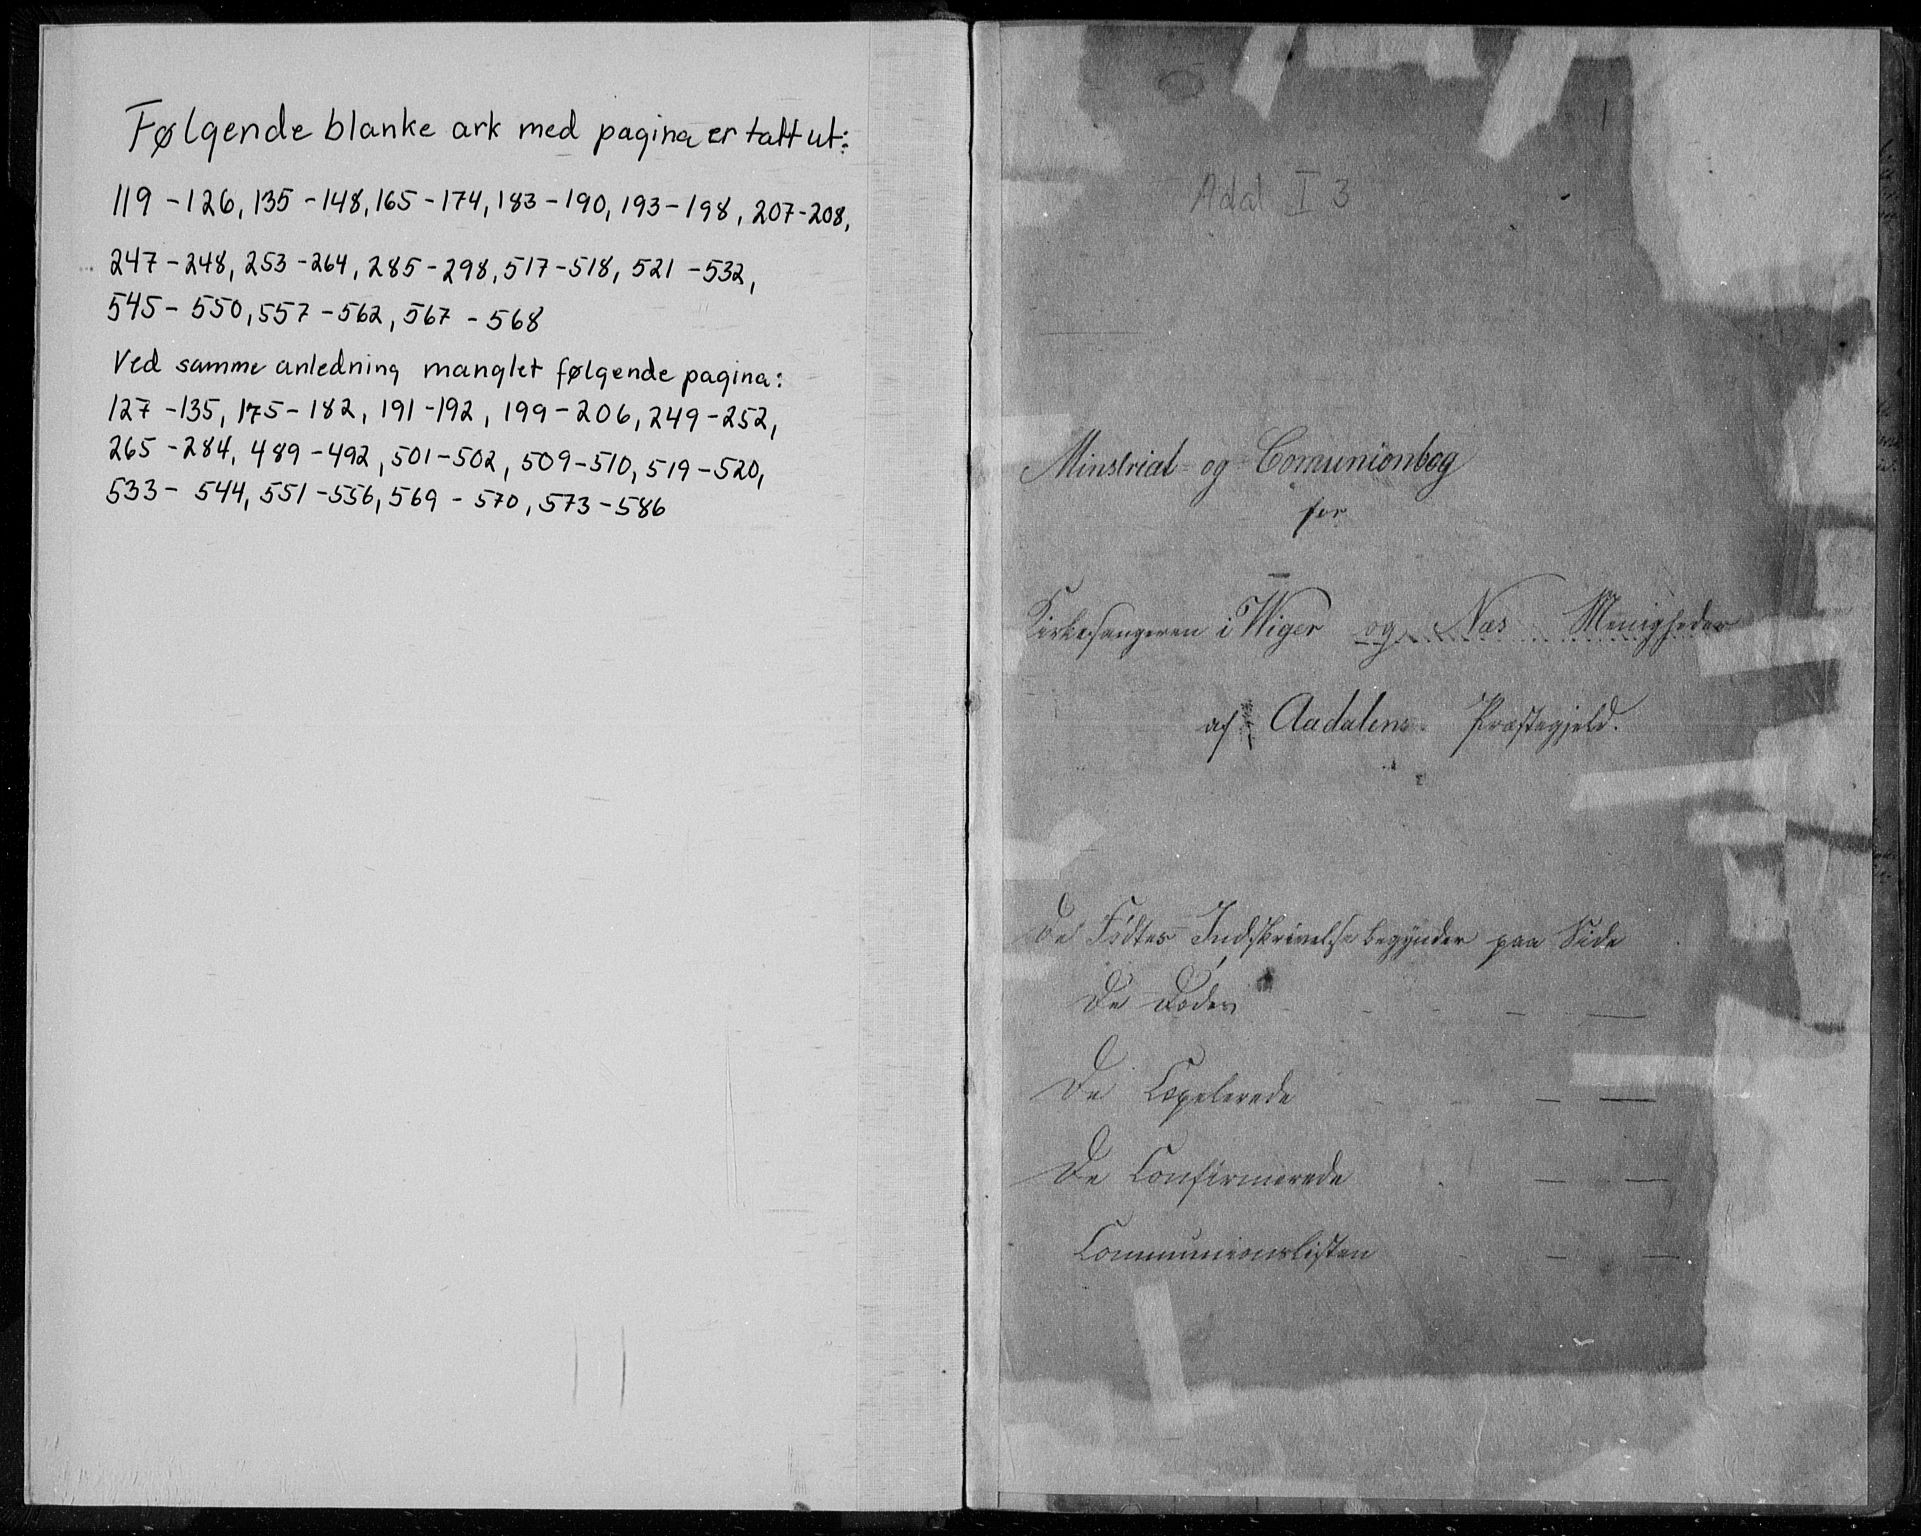 Følgende blanke ark med pagina er tatt ut:
119 - 126, 135 - 148, 165 - 174, 183 - 190, 193 - 198, 207 - 208,
247 - 248, 253 - 264, 285 - 298, 517 - 518, 521 - 532,
545 - 550, 557 - 562, 567 - 568
Ved samme anledning manglet følgende pagina:
127 - 135, 175 - 182, 191 - 192, 199 - 206, 249 - 252,
265 - 284, 489 - 492, 501 - 502, 509 - 510, 519 - 520,
533 - 544, 551 - 556, 569 - 570, 573 - 586
1
Adal I 3
Minstrial- og Comunionbog
for
Kirkesangeren i Wiger og Næs Menigheder
af Aadalens Præstegjeld.
De Födtes Indskrivelse begynder paa Side
De Dödes - - - - —
De Copelerede - - — —
De Confirmerede - — —
Communionslisten - — —